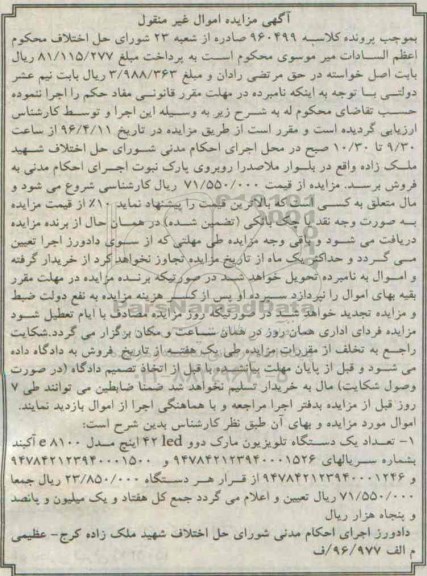 آگهی مزایده اموال غیر منقول
بموجب پرونده کلاسه ۹۶۰۴۹۹ صادره از شعبه ۲۳ شورای حل اختلاف محکوم
اعظم السادات میر موسوی محکوم است به پرداخت مبلغ ۸۱/۱۱۵/۲۷۷ ریال
بابت اصل خواسته در حق مرتضی رادان و مبلغ ۳/۹۸۸/۳۶۳ ریال بابت نیم عشر
دولتی با توجه به اینکه نامبرده در مهلت مقرر قانونی مفاد حکم را اجرا ننموده
حسب تقاضای محکوم له به شرح زیر به وسیله این اجرا و توسط کارشناس
ارزیابی گردیده است و مقرر است از طریق مزایده در تاریخ ۹۶/۴/۱۱ از ساعت
۹/۳۰ تا ۱۰/۳۰ صبح در محل اجرای احکام مدنی شورای حل اختلاف شهید
ملک زاده واقع در بلوار ملاصدرا روبروی پارک نبوت اجرای احکام مدنی به
فروش برسد. مزایده از قیمت ۷۱/۵۵۰/۰۰۰ ریال کارشناسی شروع می شود و
مال متعلق به کسی است که بالاترین قیمت را پیشنهاد نماید ۱۰٪ از قیمت مزایده
به صورت وجه نقد یا چک بانکی (تضمین شده) در همان حال از برنده مزایده
دریافت می شود و باقی وجه مزایده طی مهلتی که از سوی دادورز اجرا تعیین
می گردد و حداکثر یک ماه از تاریخ مزایده تجاوز نخواهد کرد از خریدار گرفته
و اموال به نامبرده تحویل خواهد شد در صورتیکه برنده مزایده در مهلت مقرر
بقیه بهای اموال را نپردازد سپرده او پس از کسر هزینه مزایده به نفع دولت ضبط
و مزایده تجدید خواهد شد در صورتیکه روز مزایده مصادف با ایام تعطیل شود
مزایده فردای اداری همان روز در همان ساعت و مکان برگزار می گردد.شکایت
راجع به تخلف از مقررات مزایده طی یک هفته از تاریخ فروش به دادگاه داده
می شود و قبل از پایان مهلت یا قبل از اتخاذ تصمیم دادگاه (در صورت
وصول شکایت) مال به خریدار تسلیم نخواهد شد ضمنا ضابطین می توانند طی ۷
روز قبل از مزایده بدفتر اجرا مراجعه و با هماهنگی اجرا از اموال بازدید نمایند.
اموال مورد مزایده و بهای آن طبق نظر کارشناس بدین شرح است:
۱- تعداد یک دستگاه تلویزیون مارک دوو ۴۲ led اینچ مدل e ۸۱۰۰ آکبند
بشماره سریالهای ۹۴۷۸۴۲۱۲۳۹۴۰۰۰۱۵۲۶ و ۹۴۷۸۴۲۱۲۳۹۴۰۰۰۱۵۰۰
و ۹۴۷۸۴۲۱۲۳۹۴۰۰۰۱۲۴۶ از قرار هر دستگاه ۲۳/۸۵۰/۰۰۰ ریال جمعا
۷۱/۵۵۰/۰۰۰ ریال تعیین و اعلام می گردد جمع کل هفتاد و یک میلیون و پانصد
و پنجاه هزار ریال
دادورز اجرای احکام مدنی شورای حل اختلاف شهید ملک زاده کرج- عظیمی
م الف ۹۶/۹۷۷/ف